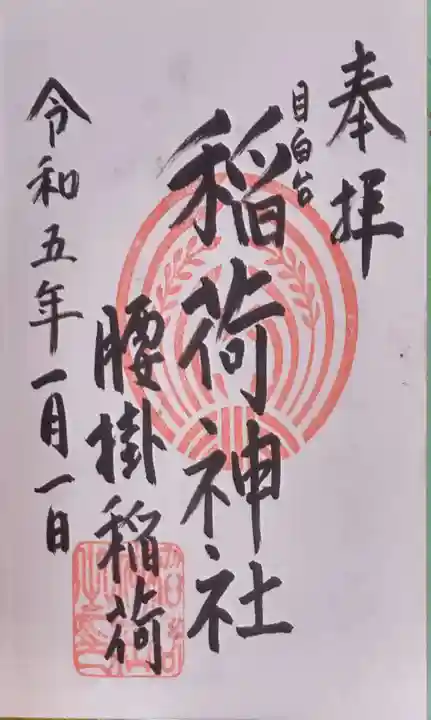 奉拝
目白台
稲荷神社
腰掛稲荷
令和五年一月一日